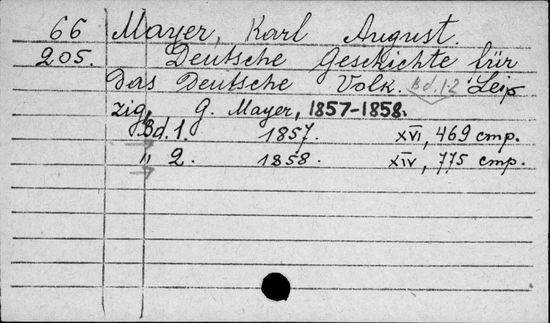 66 Mayer, Karl August.
205. Deutsche Geschichte für
das Deutsche Volk. Bd. 1-2 Leip
zig, G. Mayer, 1857-1858.
Bd. 1. 1857. XVI, 469 cmp.
" 2. 1858. XIV, 775 cmp.